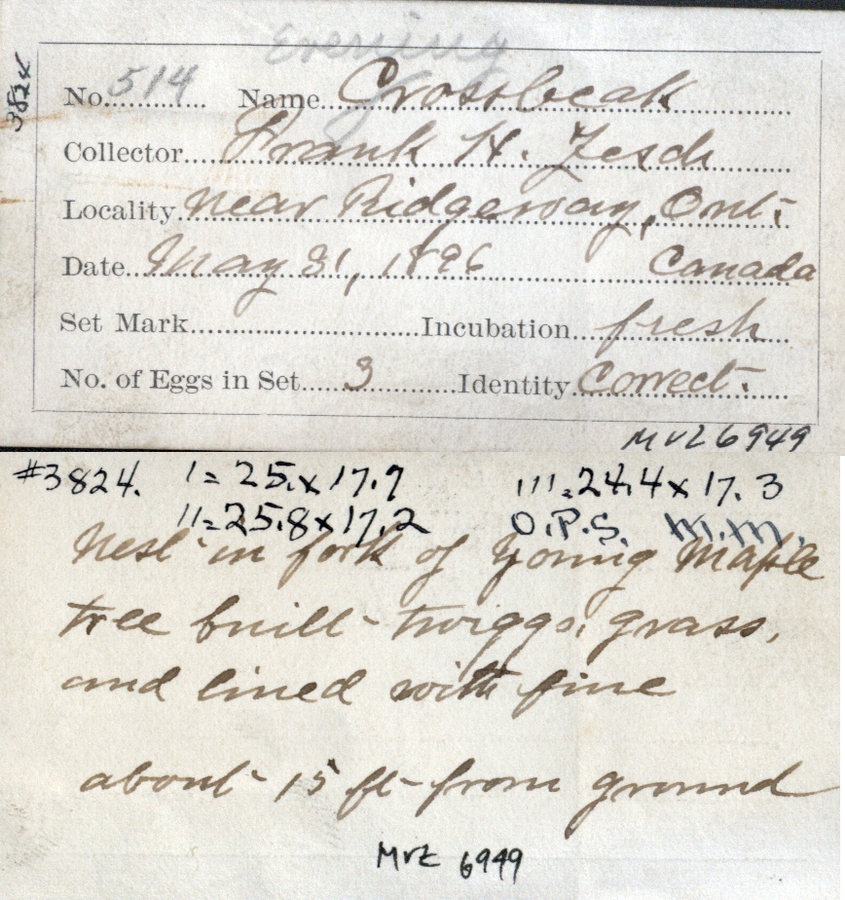 Evening
3824
No. 514 Name Grossbeak
Collector Frank H. Zesch
Locality near Ridgeway, Ont.
Date May 31, 1896 Canada
Set Mark Incubation fresh
No. of Eggs in Set 3 Identity Correct.
MVZ 6949
#3824. I = 25.x 17.7 III = 24.4 x 17.3
II = 25.8 x 17.2 O.P.S. M.M.
Nest in fork of young maple
tree built twiggs, grass,
and lined with fine
about 15 ft from ground
MVZ 6949